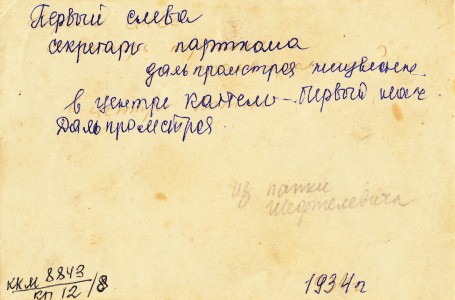 Первый слева
секретарь парткома
дальпромстроя
в центре Каттель – Первый нач
Дальпромстроя.
из папки
Шефтелевича
ККМ 8843
КП 12/8
1934 г